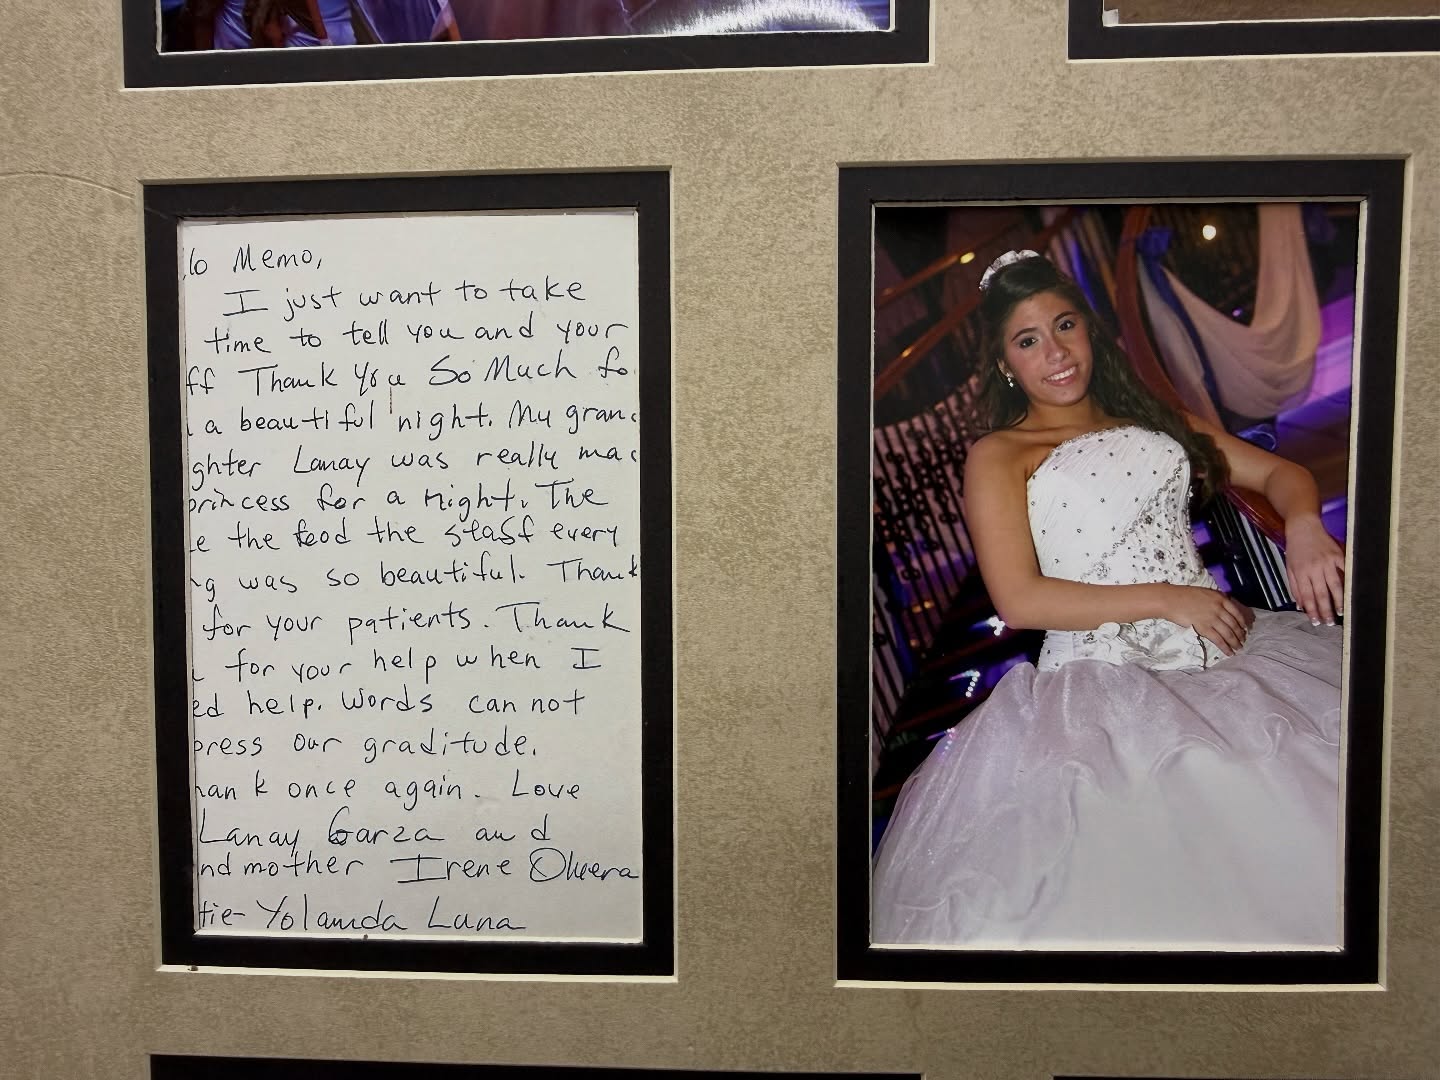 lo Memo,
I just want to take
time to tell you and your
ff Thank You So Much fo
a beautiful night. My gran
ghter Lanay was really ma
princess for a night. The
e the food the staff every
g was so beautiful. Thank
for your patients. Thank
for your help when I
ed help. Words can not
press our graditude.
hank once again. Love
Lanay Garza and
nd mother Irene Olvera
tie- Yolanda Luna